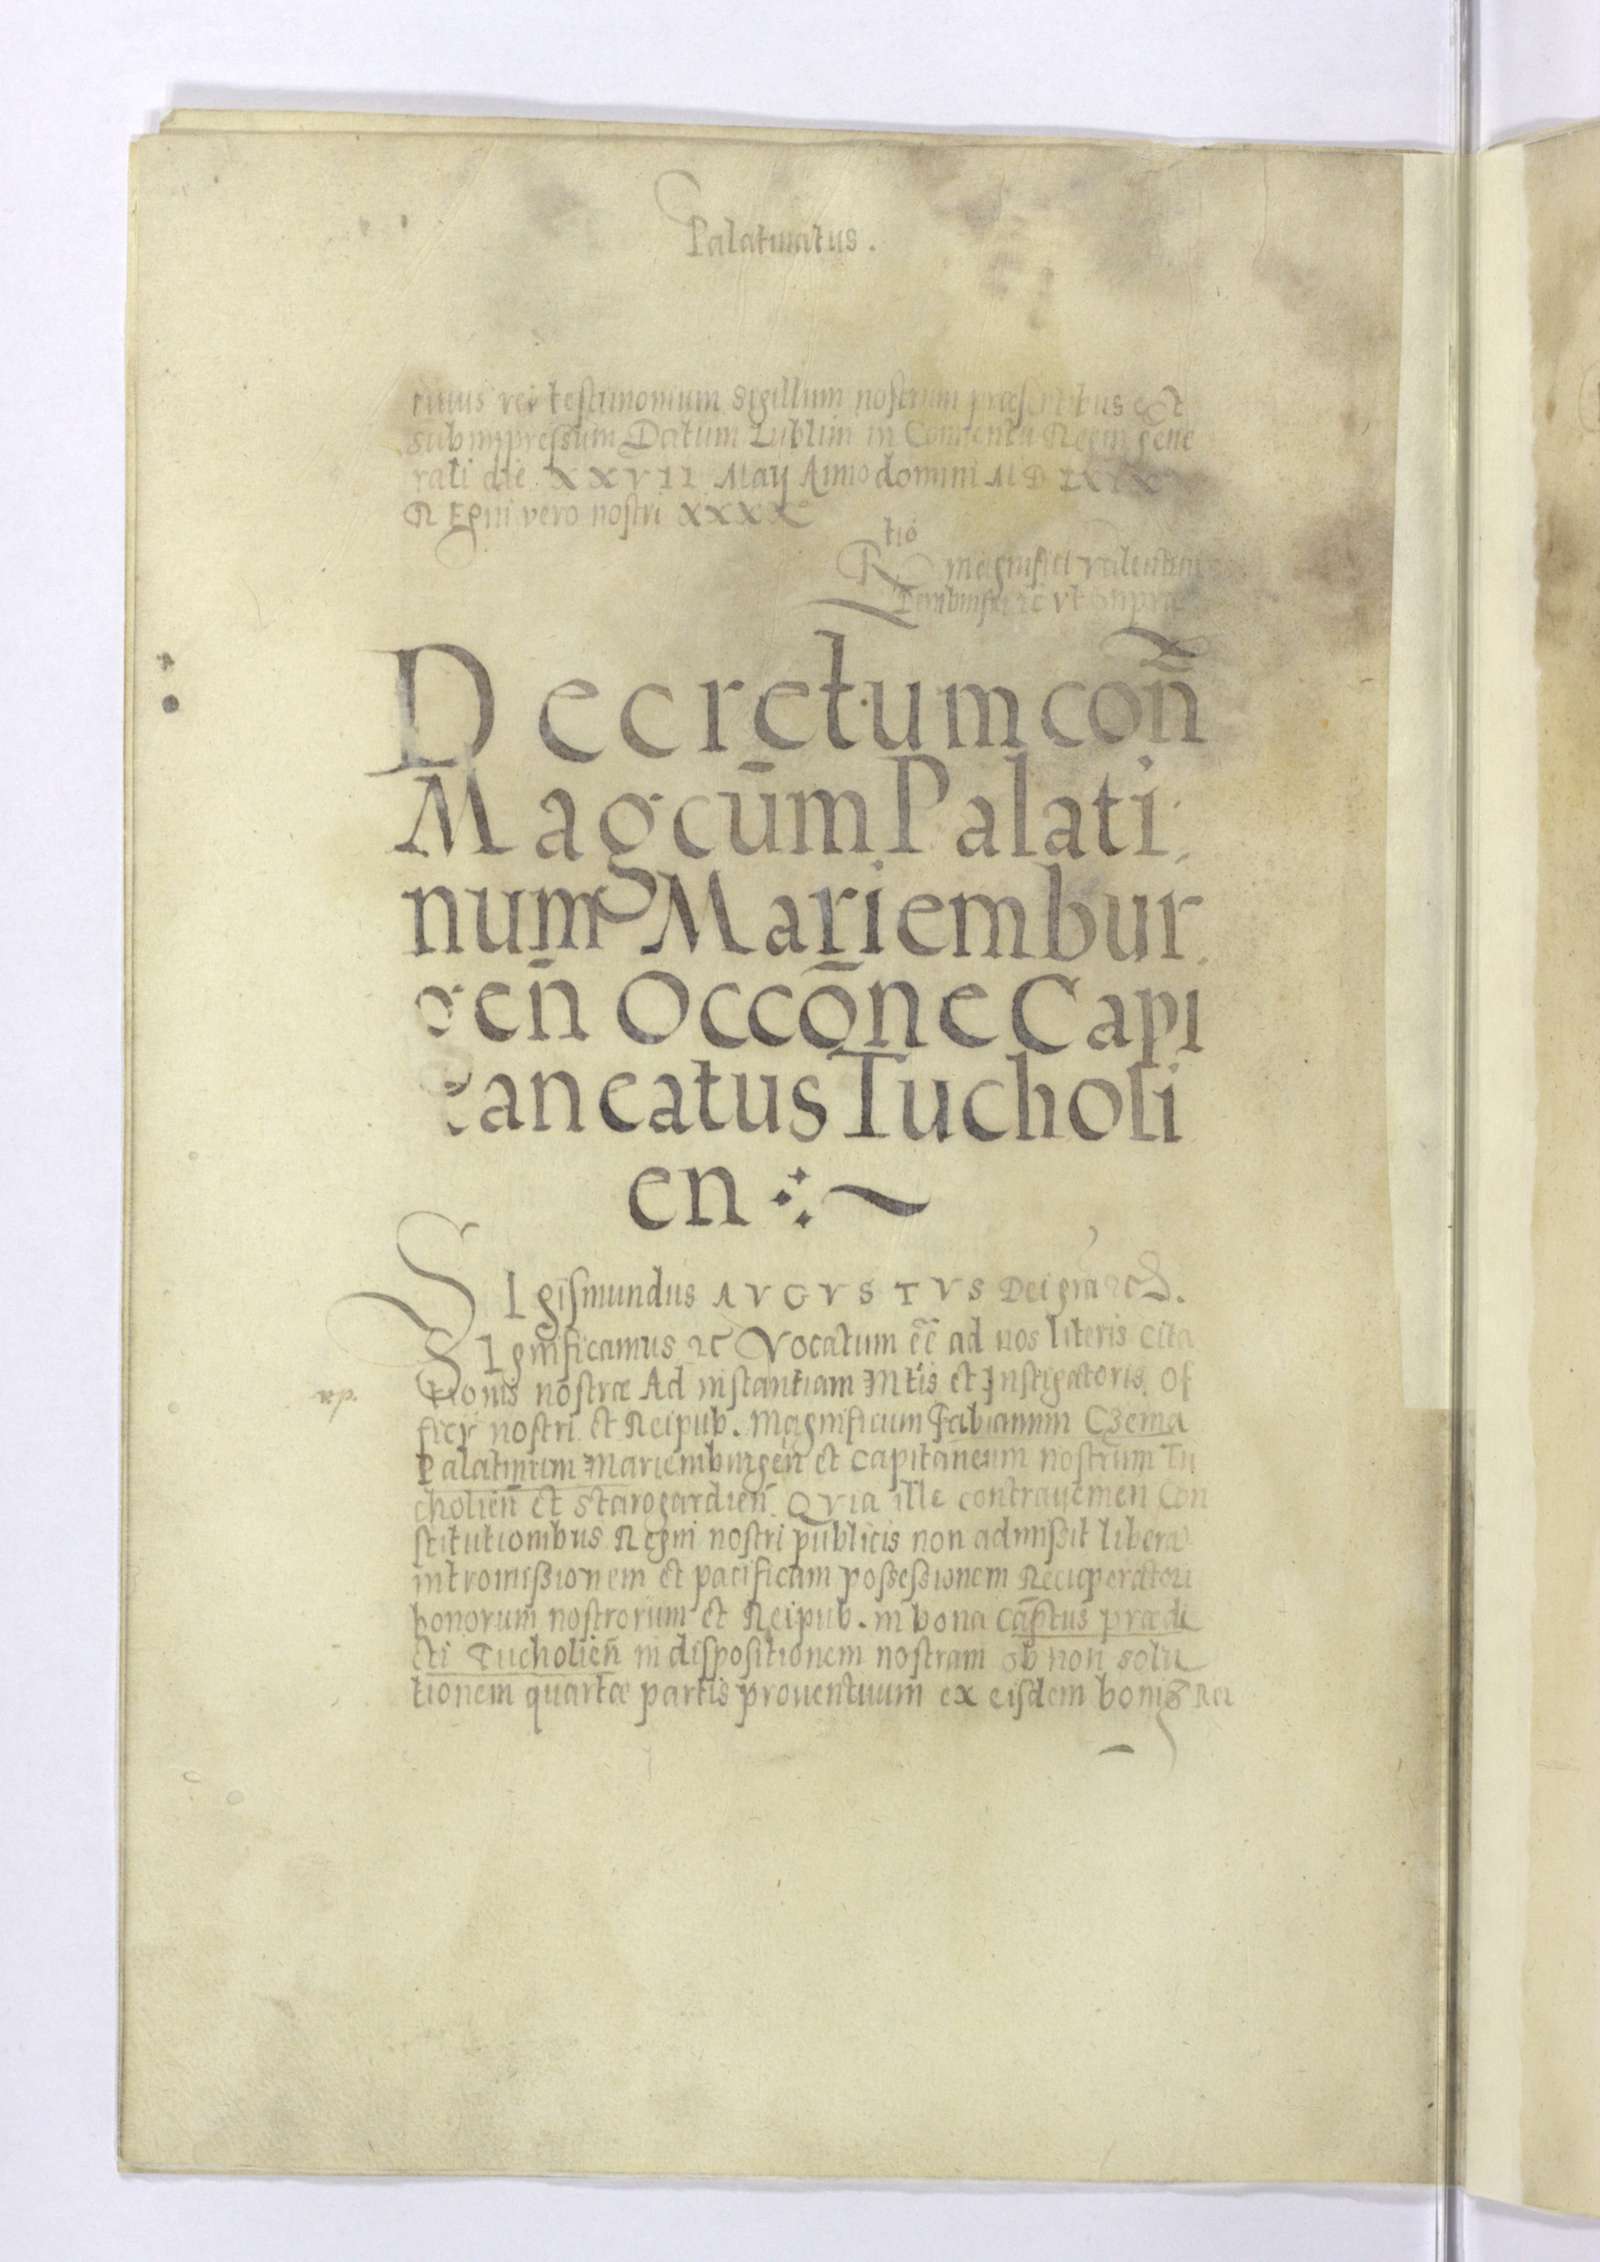 Palatinatus.
cuius rei testimonium sigillum nostrum præsentibus est
subimpressum Datum Lublini in Conuentu Regni gene
rali die XXVII Maij Anno domini MDLXIX
REgni vero nostri XXXX
tio
R magnifici valentini
Dembinski ꝛc vt supra
Decretum con̄
Magcūm Palati
num Mariembur
gen̄ Occōne Capi
taneatus Tucholi
en
SIgismundus AVGVSTVS Dei gra ꝛc
SIgnificamus ꝛc Vocatum ēē ad nos literis cita
tionis nostræ Ad instantiam Mtis et Instigatoris Of
ficij nostri et Reipub. Magnificum Fabianum Czema
Palatinum Mariemburgen̄ et Capitaneum nostrum Tu
cholien̄ et Starogardien̄ QVia ille contrauemen Con
stitutionibus Regni nostri publicis non admissit liberā
intromissionem et pacificam possessionem Recuperatori
bonorum nostrorum et Reipub. in bona Captus prædi
cti Tucholien̄ in dispositionem nostram ob non solu
tionem quartæ partis prouentuum ex eisdem bonis Rei